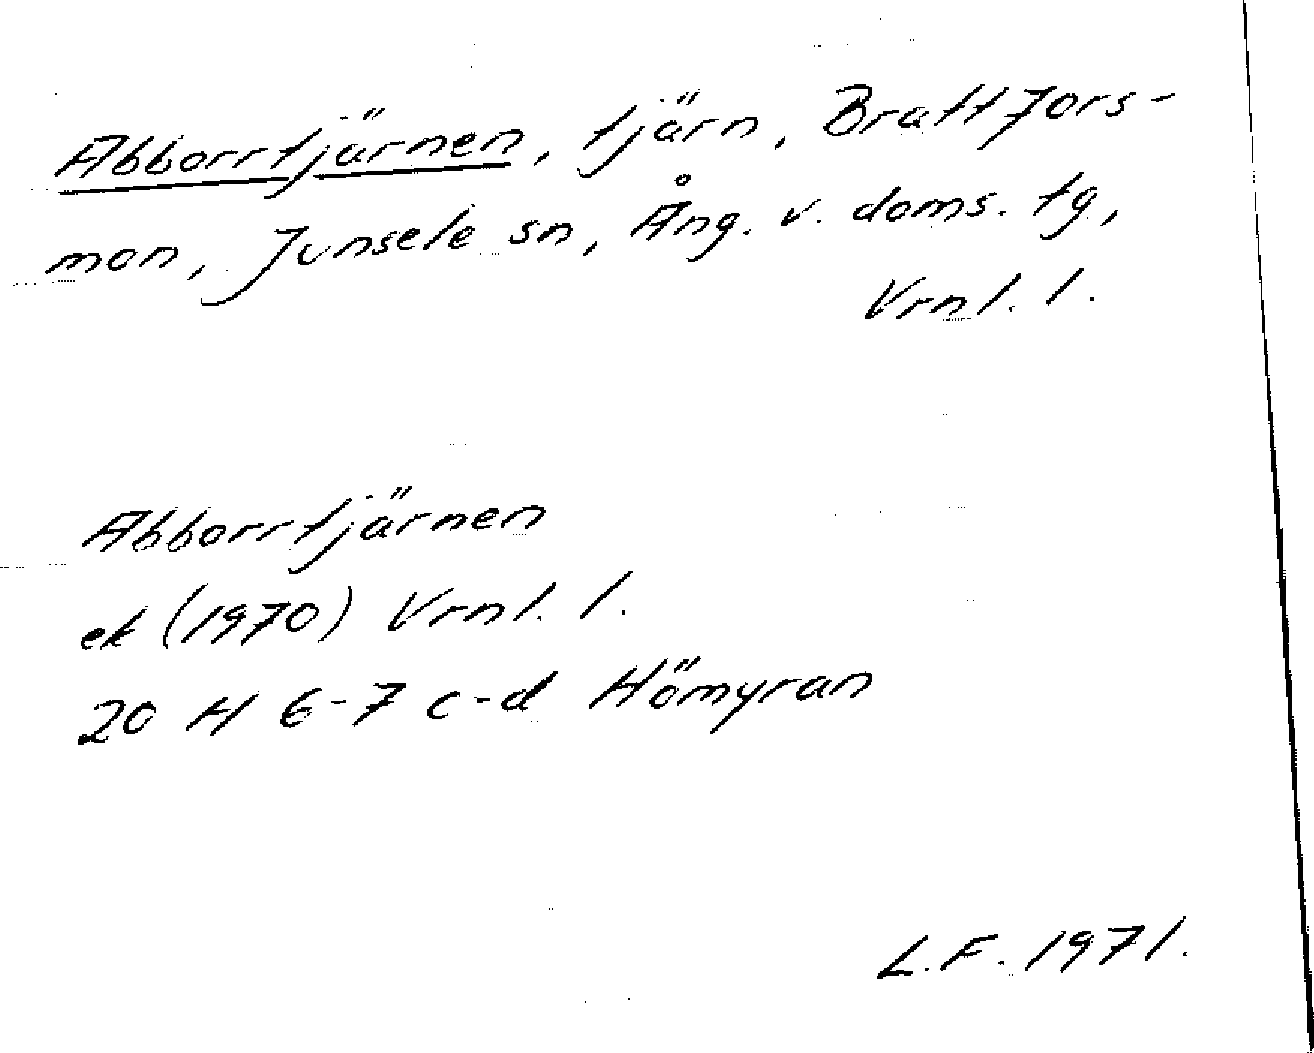 Abborrtjärnen, tjärn, Brattfors-
mon, Junsele sn, Ång. v. doms. tg,
Vrnl. l.
Abborrtjärnen
ek (1970) Vrnl. l.
20 H 6-7 c-d Hömyran
L.F. 1971.